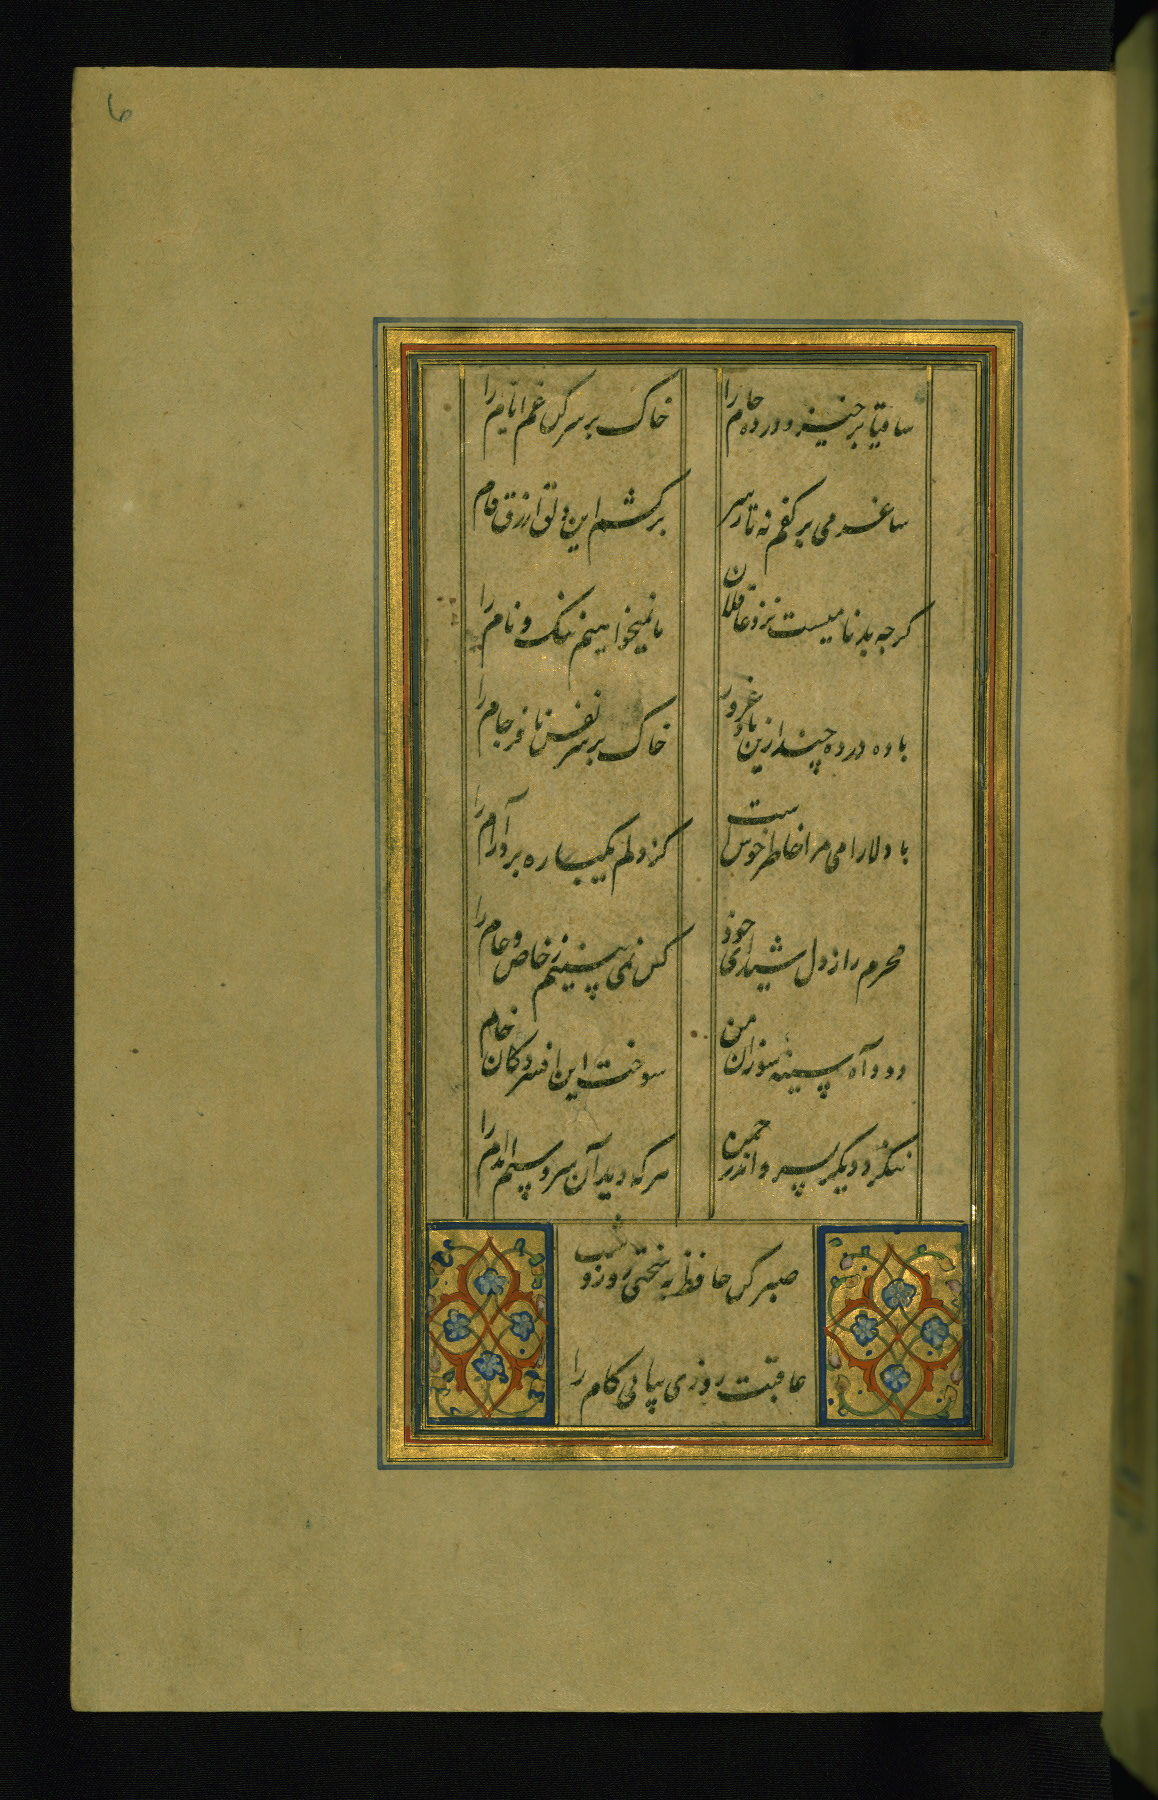 ۶
ساقیا برخیز و در ده جام را
خاک بر سر کن غم ایام را
ساغر می بر کفم نه تا ز سر
بر کشم این دلق ازرق فام
کرچه بدنامیست نزد عاقلان
ما نمیخواهیم ننک و نام را
باده در ده چند ازین باد غرور
خاک بر سر نفس نافرجام را
با دلارامی مرا خاطر خوش است
کز دلم یکباره برد آرام را
محرم راز دل شیدای خود
کس نمی بینم ز خاص و عام را
دود آه سینه سوزان من
سوخت این افسردکان خام
ننکرد دیکر بسرو اندر چمن
هر که دید آن سرو سیم اندام را
صبر کن حافظ به سختی روز و شب
عاقبت روزی بیابی کام را